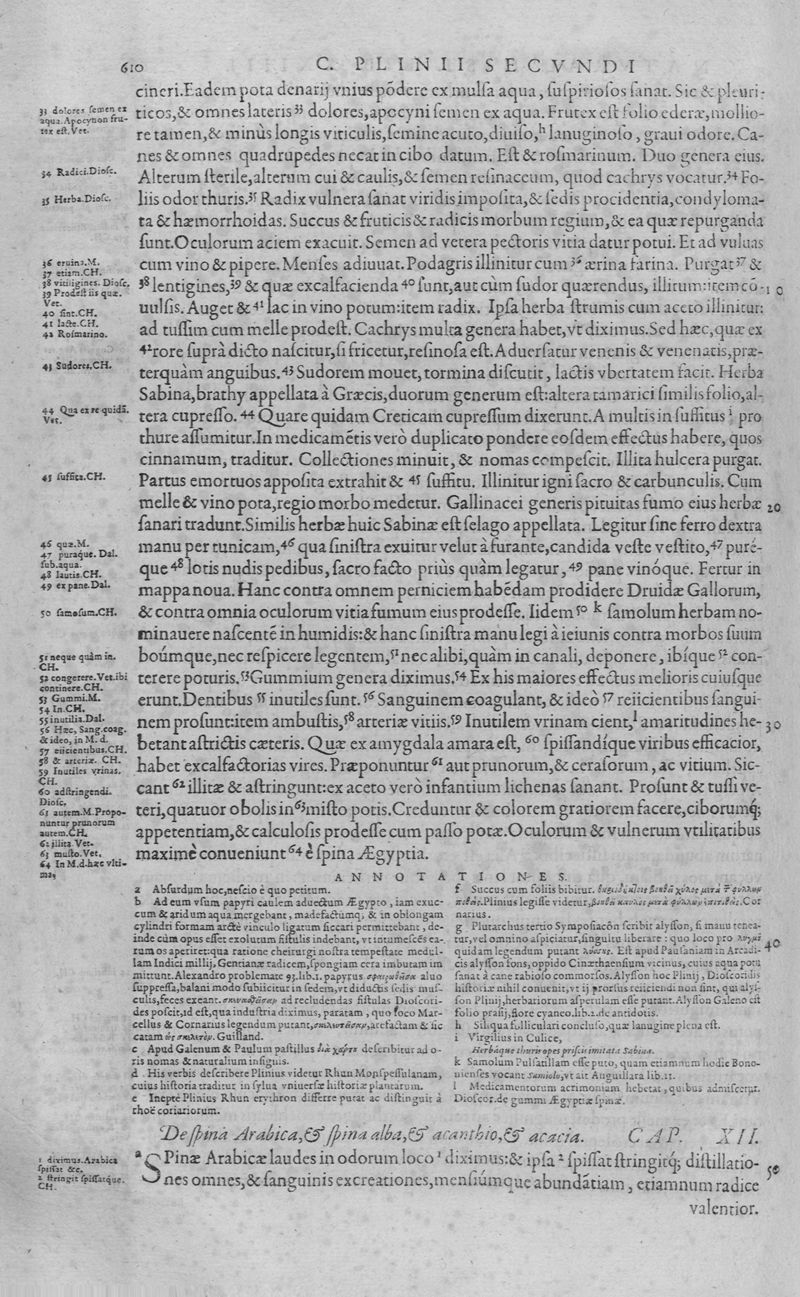 610
C. PLINII SECVNDI
cineri. Eadem pota denarij vnius põdere ex mulsa aqua, suspiriosos sanat. Sic & pleuri-
ticos, & omnes lateris 33 dolores, apocyni semen ex aqua. Frutex est folio ederæ, mollio-
re tamen, & minùs longis viticulis, semine acuto, diuiso, h lanuginoso, graui odore. Ca-
nes & omnes quadrupedes necat in cibo datum. Est & rosmarinum. Duo genera eius.
Alterum sterile, alterum cui & caulis, & semen resinaceum, quod cachrys vocatur. 34 Fo-
liis odor thuris. 35 Radix vulnera sanat viridis imposita, & sedis procidentia, condyloma-
ta & hæmorrhoidas. Succus & fruticis & radicis morbum regium, & ea quæ repurganda
sunt. Oculorum aciem exacuit. Semen ad vetera pectoris vitia datur potui. Et ad vuluas
cum vino & pipere. Menses adiuuat. Podagris illinitur cum 36 ærina farina. Purgat 37 &
38 lentigines, 39 & quæ excalfacienda 40 sunt, aut cùm sudor quærendus, illitum: item cõ-
uulsis. Auget & 41 lac in vino potum: item radix. Ipsa herba strumis cum aceto illinitur:
ad tussim cum melle prodest. Cachrys multa genera habet, vt diximus. Sed hæc, quæ ex
42 rore suprà dicto nascitur, si fricetur, resinosa est. Aduersatur venenis & venenatis, præ-
terquàm anguibus. 43 Sudorem mouet, tormina discutit, lactis vbertatem facit. Herba
Sabina, brathy appellata à Græcis, duorum generum est: altera tamarici similis folio, al-
tera cupresso. 44 Quare quidam Creticam cupressum dixerunt. A multis in suffitus i pro
thure assumitur. In medicamẽtis verò duplicato pondere eosdem effectus habere, quos
cinnamum, traditur. Collectiones minuit, & nomas compescit. Illita hulcera purgat.
Partus emortuos apposita extrahit & 45 suffitu. Illinitur igni sacro & carbunculis. Cum
melle & vino pota, regio morbo medetur. Gallinacei generis pituitas fumo eius herbæ
sanari tradunt. Similis herbæ huic Sabinæ est selago appellata. Legitur sine ferro dextra
manu per tunicam, 46 qua sinistra exuitur velut à furante, candida veste vestito, 47 puré-
que 48 lotis nudis pedibus, sacro facto priùs quàm legatur, 49 pane vinóque. Fertur in
mappa noua. Hanc contra omnem perniciem habẽdam prodidere Druidæ Gallorum,
& contra omnia oculorum vitia fumum eius prodesse. Iidem 50 k samolum herbam no-
minauere nascentẽ in humidis: & hanc sinistra manu legi à ieiunis contra morbos suum
boúmque, nec respicere legentem, 51 nec alibi, quàm in canali, deponere, ibíque 52 con-
terere poturis. 53 Gummium genera diximus. 54 Ex his maiores effectus melioris cuiusque
erunt. Dentibus 55 inutiles sunt. 56 Sanguinem coagulant, & ideò 57 reiicientibus sangui-
nem prosunt: item ambustis, 58 arteriæ vitiis. 59 Inutilem vrinam cient, l amaritudines he-
betant astrictis cæteris. Quæ ex amygdala amara est, 60 spissandíque viribus efficacior,
habet excalfactorias vires. Præponuntur 61 aut prunorum, & ceraforum, ac vitium. Sic-
cant 62 illitæ & astringunt: ex aceto verò infantium lichenas sanant. Prosunt & tussi ve-
teri, quatuor obolis in 63 misto potis. Creduntur & colorem gratiorem facere, ciborumq;
appetentiam, & calculosis prodesse cum passo potæ. Oculorum & vulnerum vtilitatibus
maximè conueniunt 64 è spina Ægyptia.
33 dolores semen ex
aqua. Apocynon fru-
tex est. Vet.
34 Radici. Diosc.
35 Herba. Diosc.
36 eruina. M.
37 etiam. CH.
38 vitiligines. Diosc.
39 Prodest iis quæ.
Vet.
40 sint. CH.
41 lacte. CH.
42 Rosmarino.
43 Sudores. CH.
44 Qua ex re quidã.
Vet.
45 suffita. CH.
46 quæ. M.
47 puraque. Dal.
sub. aqua.
48 lautis. CH.
49 ex pane. Dal.
50 samosum. CH.
51 neque quàm in.
CH.
52 congerere. Vet. ibi
continere. CH.
53 Gummi. M.
54 In. CH.
55 inutilia. Dal.
56 Hæc, Sang. coag.
& ideo, in M. d.
57 eiicientibus. CH.
58 & arteriæ. CH.
59 Inutiles vrinas.
CH.
60 adstringendi.
Diosc.
61 autem. M. Propo-
nuntur prunorum
autem. CH.
62 illita. Vet.
63 musto. Vet.
64 In M. d. hæc vlti-
ma.
10
20
30
40
50
ANNOTATIONES.
a Absurdum hoc, nescio è quo petitum.
b Ad eum vsum papyri caulem aduectum Ægypto, iam exuc-
cum & aridum aqua mergebant, madefactumq; & in oblongam
cylindri formam arctè vinculo ligatum siccari permittebant, de-
inde cùm opus esset exolutum fistulis indebant, vt intumescẽs ea-
rum os aperiret: qua ratione cheirurgi nostra tempestate medul-
lam Indici millij, Gentianæ radicem, spongiam cera imbutam im
mittunt. Alexandro problemate 95. lib. 1. papyrus aluo
suppressa, balani modo subiicitur in sedem, vt diductis sedis mus-
culis, feces exeant. ad recludendas fistulas Dioscori-
des poscit, id est, qua industria diximus, paratam, quo loco Mar-
cellus & Cornarius legendum putant, arefactam & sic
catam. Guilland.
c Apud Galenum & Paulum pastillus describitur ad o-
ris nomas & naturalium insignis.
d His verbis describere Plinius videtur Rhun Monspessulanam,
cuius historia traditur in sylua vniuersæ historiæ plantarum.
e Ineptè Plinius Rhun erythron differre putat ac distinguit à
rhoë coriariorum.
f Succus cum foliis bibitur.
Plinius legisse videtur, Cor
narius.
g Plutarchus tertio Symposiacôn scribit alysson, si manu tenea-
tur, vel omnino aspiciatur, singultu liberare: quo loco pro
quidam legendum putant. Est apud Pausaniam in Arcadi-
cis alysson fons, oppido Cinæthaensium vicinus, cuius aqua pota
sanat à cane rabioso commorsos. Alysson hoc Plinij, Dioscoridis
historiæ nihil conuenit, vt ij prorsus reiiciendi non sint, qui alys-
son Plinij, herbariorum asperulam esse putant. Alysson Galeno est
folio prasij, flore cyaneo. lib. 2. de antidotis.
h Siliqua folliculari concluso, quæ lanugine plena est.
i Virgilius in Culice,
Herbáque thuris opes priscis imitata Sabina.
k Samolum Pulsatillam esse puto, quam etiamnum hodie Bono-
nienses vocant Samiolo, vt ait Anguillara lib. 11.
l Medicamentorum acrimoniam hebetat, quibus admiscetur.
Dioscor. de gummi Ægyptiæ spinæ.
De spina Arabica, & spina alba, & acanthio, & acacia. CAP. XII.
a SPinæ Arabicæ laudes in odorum loco 1 diximus: & ipsa 2 spissat stringitq; distillatio-
nes omnes, & sanguinis excreationes, mensiúmque abundãtiam, etiamnum radice
valentior.
1 diximus. Arabica
spissat &c.
2 stringit spissatque.
CH.